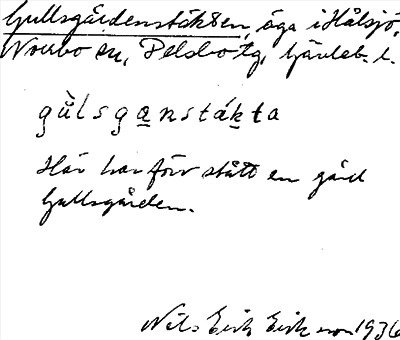 Gullsgårdenstäkten, äga i Hålsjö,
Norrbo sn, Delsbo tg, Gävleb. l.
gùlsga̲nsták̲ta
Här har förr stått en gård
Gullsgården.
Nils Erik Eriksson 1936